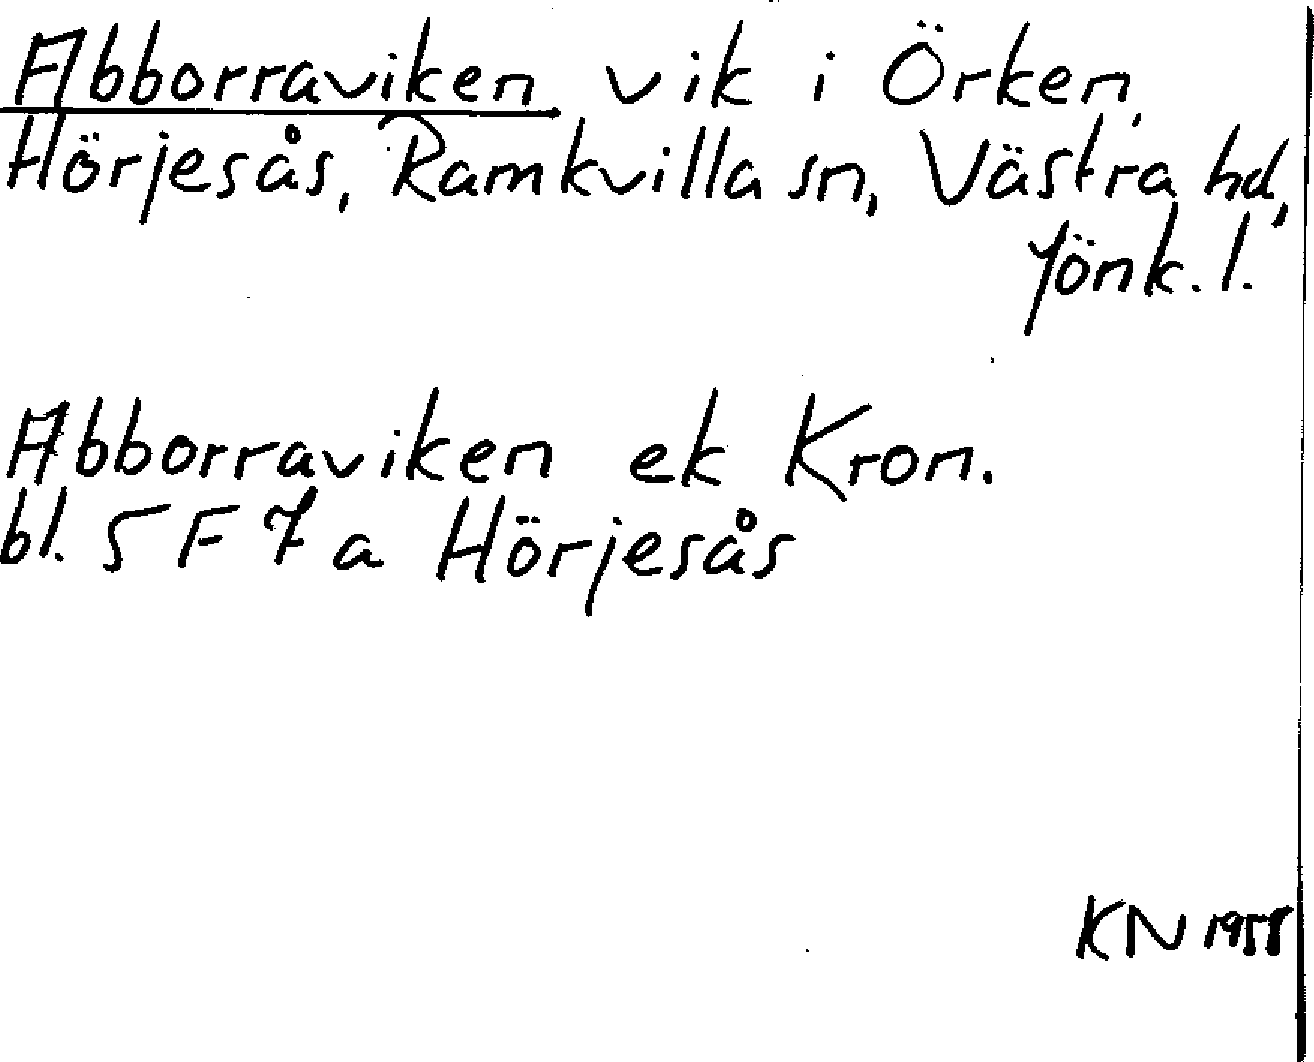 Abborraviken vik i Örken,
Hörjesås, Ramkvilla sn, Västra hd,
Jönk. l.
Abborraviken ek Kron.
bl. 5 F 7 a Hörjesås
KN